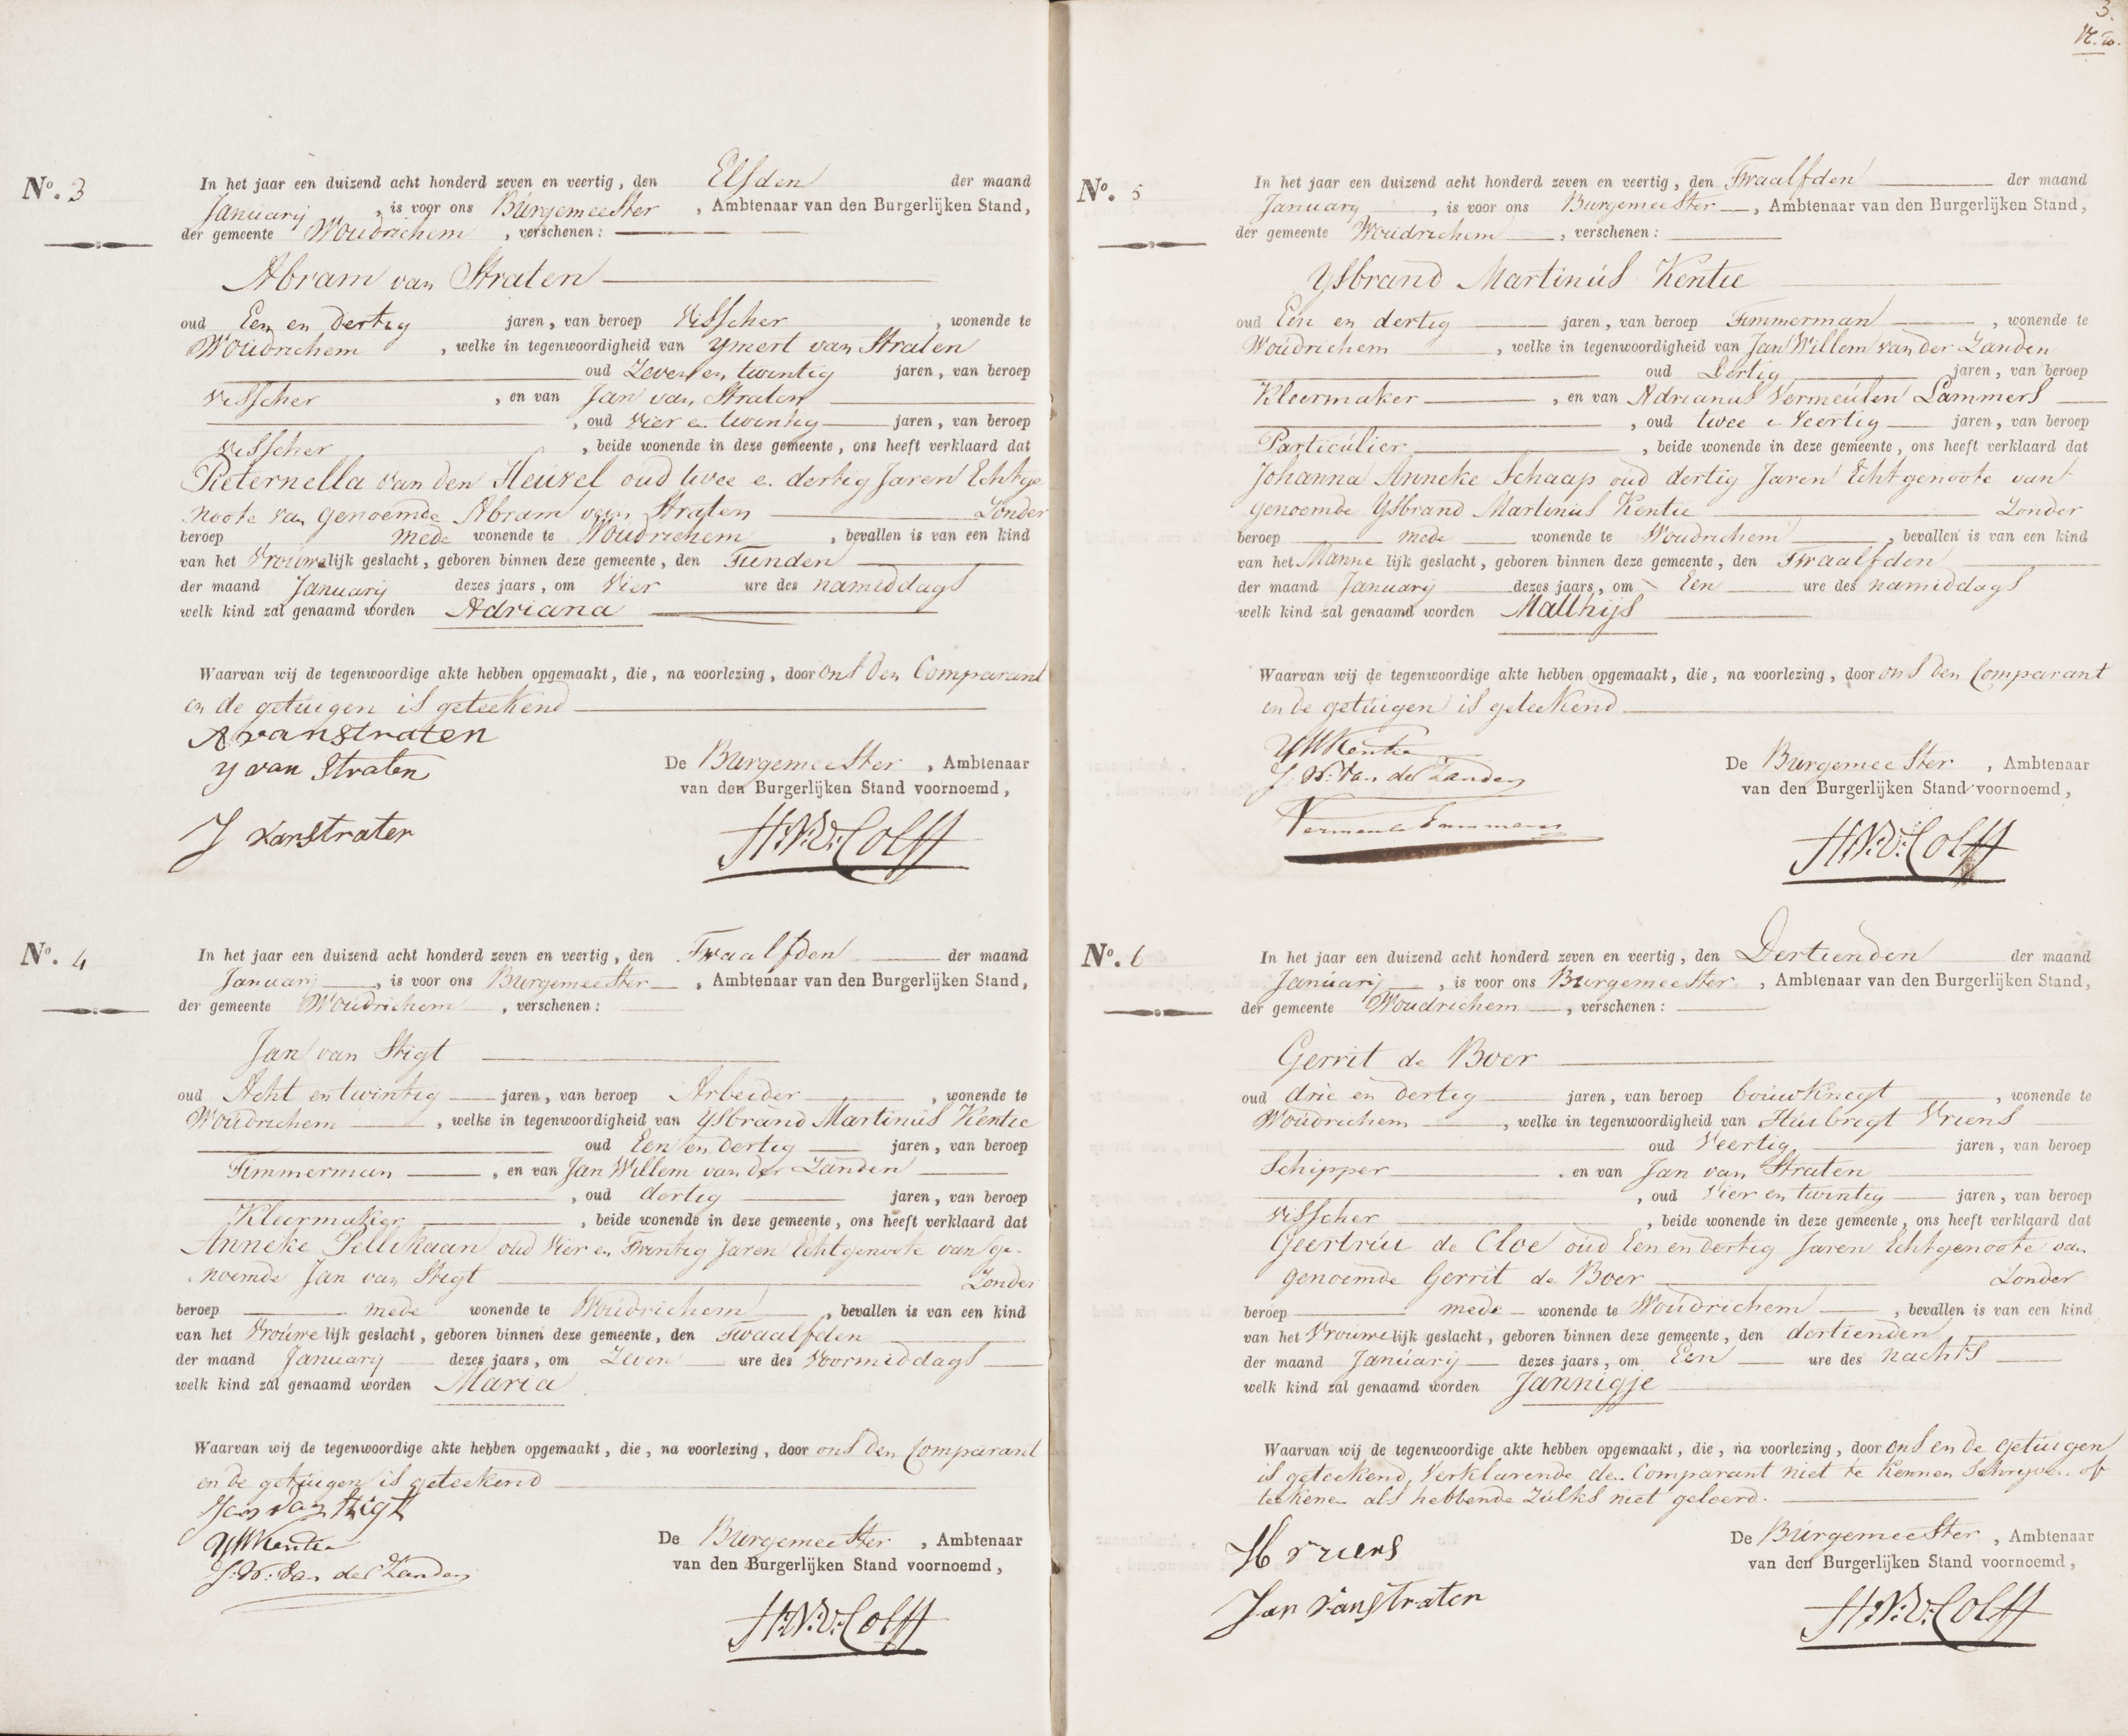 No. 3
In het jaar een duizend acht honderd zeven en veertig, den Elfden der maand
Januarij, is voor ons Burgemeester, Ambtenaar van den Burgerlijken Stand,
der gemeente Woudrichem, verschenen:
Abram van Straten
oud Een en dertig jaren, van beroep Visscher, wonende te
Woudrichem, welke in tegenwoordigheid van Ymert van Straten
oud Zeven en twintig jaren, van beroep
Visscher, en van Jan van Straten
, oud Vier en twintig jaren, van beroep
Visscher, beide wonende in deze gemeente, ons heeft verklaard dat
Pieternella van den Heuvel oud twee en dertig Jaren Echtge
noote van genoemde Abram van Straten Zonder
beroep mede wonende te Woudrichem, bevallen is van een kind
van het Vrouwelijk geslacht, geboren binnen deze gemeente, den Tienden
der maand Januarij dezes jaars, om Vier ure des namiddags
welk kind zal genaamd worden Adriana
Waarvan wij de tegenwoordige akte hebben opgemaakt, die, na voorlezing, door ons den Comparant
en de getuigen is geteekend
A van Straten
Y van Straten
J van Straten
De Burgemeester, Ambtenaar
van den Burgerlijken Stand voornoemd,
No. 4
In het jaar een duizend acht honderd zeven en veertig, den Twaalfden der maand
Januarij, is voor ons Burgemeester, Ambtenaar van den Burgerlijken Stand,
der gemeente Woudrichem, verschenen:
Jan van Stigt
oud Acht en twintig jaren, van beroep Arbeider, wonende te
Woudrichem, welke in tegenwoordigheid van Ysbrand Martinus Kentie
oud Een en dertig jaren, van beroep
Timmerman, en van Jan Willem van der Zanden
, oud dertig jaren, van beroep
Kleermaker, beide wonende in deze gemeente, ons heeft verklaard dat
Anneke Pellikaan oud Vier en Twintig Jaren Echtgenoote van ge-
noemde Jan van Stigt Zonder
beroep mede wonende te Woudrichem, bevallen is van een kind
van het Vrouwelijk geslacht, geboren binnen deze gemeente, den Twaalfden
der maand Januarij dezes jaars, om Zeven ure des Voormiddags
welk kind zal genaamd worden Maria
Waarvan wij de tegenwoordige akte hebben opgemaakt, die, na voorlezing, door ons den Comparant
en de getuigen is geteekend
Jan van Stigt
YM Kentie
J. W. Van der Zanden
De Burgemeester, Ambtenaar
van den Burgerlijken Stand voornoemd,
3.
No. 5
In het jaar een duizend acht honderd zeven en veertig, den Twaalfden der maand
Januarij, is voor ons Burgemeester, Ambtenaar van den Burgerlijken Stand,
der gemeente Woudrichem, verschenen:
Ysbrand Martinus Kentie
oud Een en dertig jaren, van beroep Timmerman, wonende te
Woudrichem, welke in tegenwoordigheid van Jan Willem van der Zanden
oud Dertig jaren, van beroep
Kleermaker, en van Adrianus Vermeulen Lammers
, oud twee en Veertig jaren, van beroep
Particulier, beide wonende in deze gemeente, ons heeft verklaard dat
Johanna Anneke Schaap oud dertig Jaren Echtgenoote van
genoemde Ysbrand Martinus Kentie Zonder
beroep mede wonende te Woudrichem, bevallen is van een kind
van het Mannelijk geslacht, geboren binnen deze gemeente, den Twaalfden
der maand Januarij dezes jaars, om Een ure des namiddags
welk kind zal genaamd worden Matthijs
Waarvan wij de tegenwoordige akte hebben opgemaakt, die, na voorlezing, door ons den Comparant
en de getuigen is geteekend
YM Kentie
J. W. Van der Zanden
Vermeulen Lammers
De Burgemeester, Ambtenaar
van den Burgerlijken Stand voornoemd,
No. 6
In het jaar een duizend acht honderd zeven en veertig, den Dertienden der maand
Januarij, is voor ons Burgemeester, Ambtenaar van den Burgerlijken Stand,
der gemeente Woudrichem, verschenen:
Gerrit de Boer
oud drie en dertig jaren, van beroep bouwknegt, wonende te
Woudrichem, welke in tegenwoordigheid van Huibregt Vriens
oud Veertig jaren, van beroep
Schipper, en van Jan van Straten
, oud Vier en twintig jaren, van beroep
Visscher, beide wonende in deze gemeente, ons heeft verklaard dat
Geertrui de Cloe oud Een en dertig Jaren Echtgenoote van
genoemde Gerrit de Boer Zonder
beroep mede wonende te Woudrichem, bevallen is van een kind
van het Vrouwelijk geslacht, geboren binnen deze gemeente, den dertienden
der maand Januarij dezes jaars, om Een ure des nachts
welk kind zal genaamd worden Jannigje
Waarvan wij de tegenwoordige akte hebben opgemaakt, die, na voorlezing, door ons en de getuigen
is geteekend, Verklarende de Comparant niet te kennen Schrijven of
teekenen als hebbende zulks niet geleerd.
H Vriens
Jan van Straten
De Burgemeester, Ambtenaar
van den Burgerlijken Stand voornoemd,